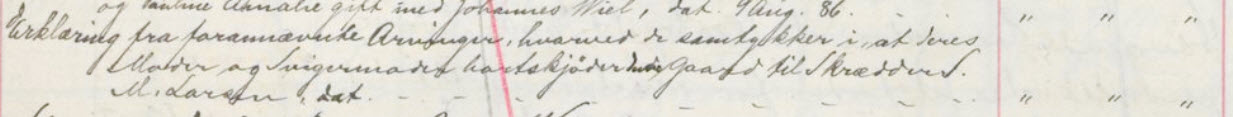 og Pauline Amalie gift med Johannes Wiel, dat. 9 Aug. 86. " " "
Erklæring fra forannævnte Arvinger, hvorved de samtykker i, at deres
Moder og Svigermoder bortskjøder Gaard til Skrædder S.
M. Larsen, dat. " " "